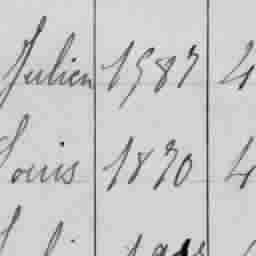 Julien 1887 4
Louis 1870 4